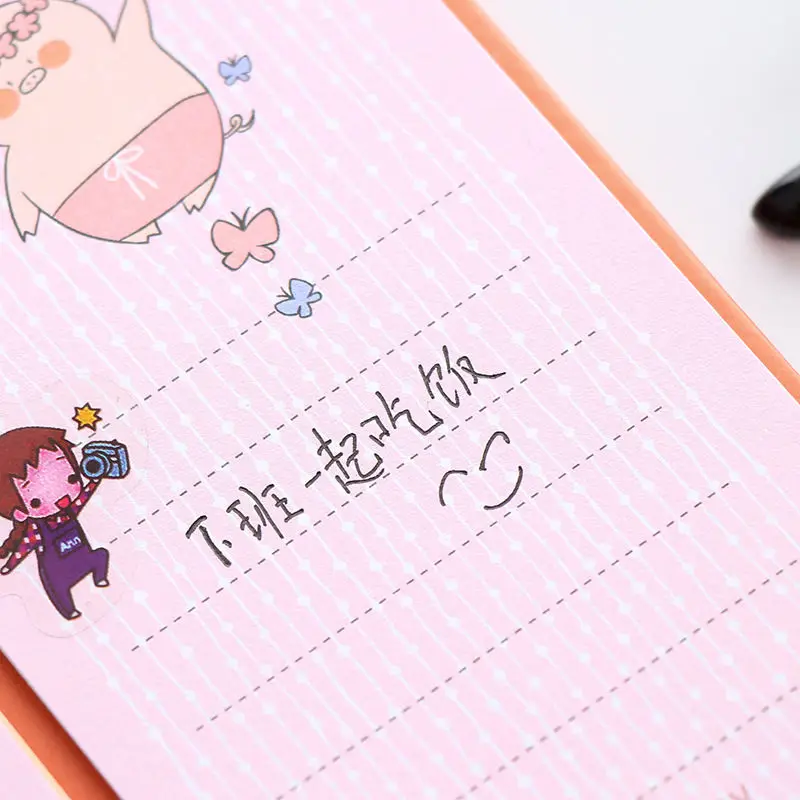 下班一起吃饭
Ann